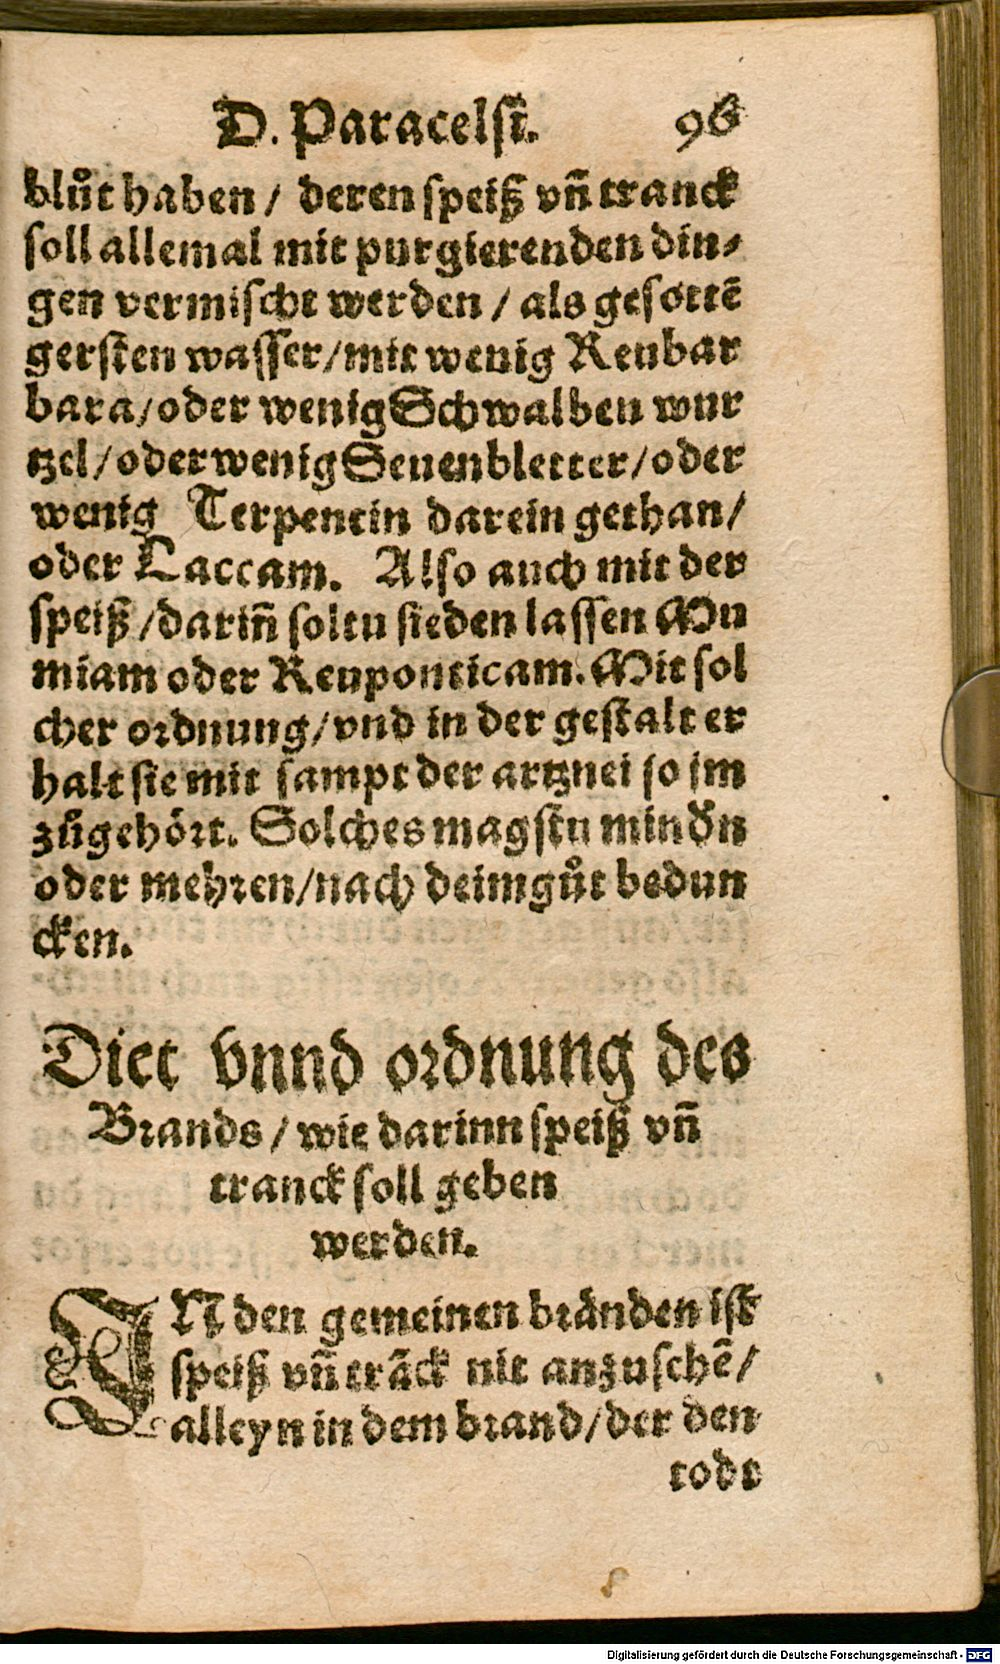 D. Paracelsi. 96
blůt haben / deren speiß vñ tranck
soll allemal mit purgierenden din⸗
gen vermischt werden / als gesottē
gersten wasser / mit wenig Reubar
bara / oder wenig Schwalben wur
tzel / oder wenig Seuenbletter / oder
wenig Terpentin darein gethan /
oder Laccam. Also auch mit der
speiß / dariñ soltu sieden lassen Mu
miam oder Reuponticam. Mit sol
cher ordnung / vnd in der gestalt er
halt sie mit sampt der artznei so jm
zůgehört. Solches magstu mindn̄
oder mehren / nach deim gůt bedun
cken.
Diet vnnd ordnung des
Brands / wie darinn speiß vñ
tranck soll geben
werden.
IN den gemeinen bränden ist
speiß vñ trāck nit anzusehē /
alleyn in dem brand / der den
todt
Digitalisierung gefördert durch die Deutsche Forschungsgemeinschaft - DFG